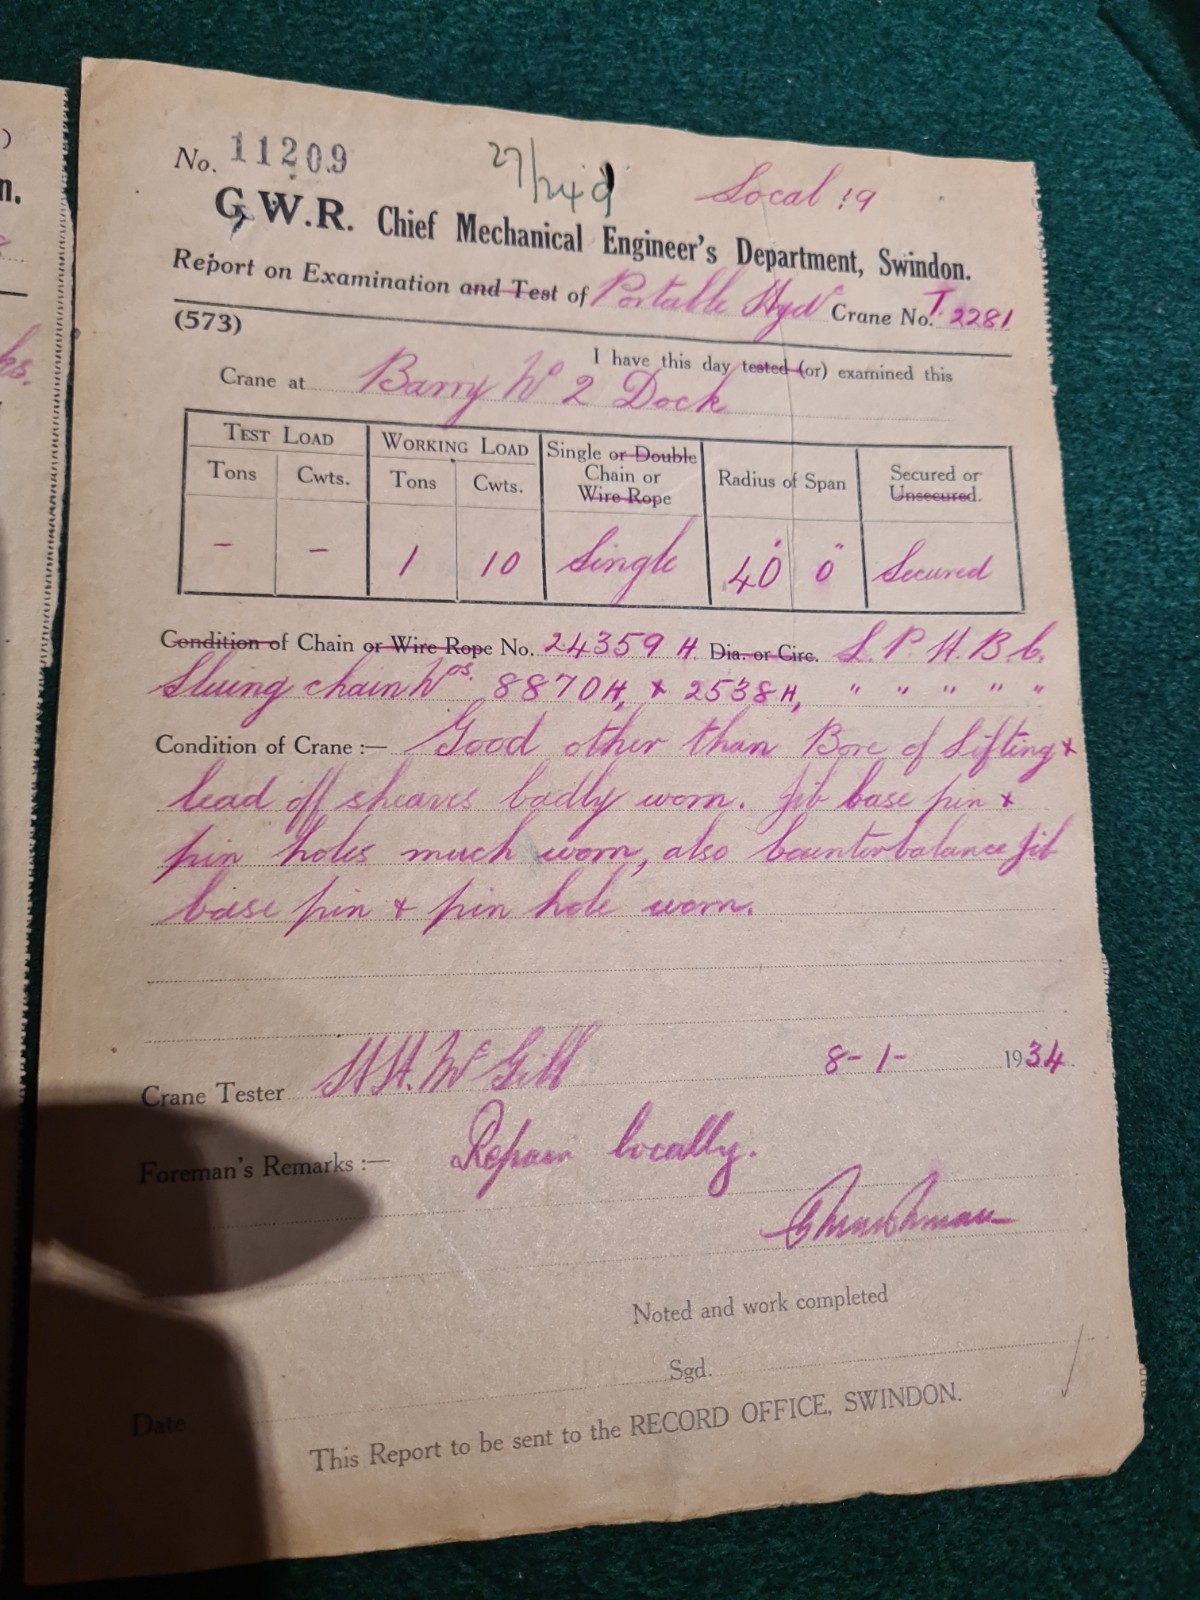 No. 11209
27/249
Local :9
G.W.R. Chief Mechanical Engineer's Department, Swindon.
Report on Examination and Test of Portable Hydc Crane No. T. 2281
(573)
I have this day tested (or) examined this
Crane at Barry No 2 Dock
TEST LOAD WORKING LOAD Single or Double Chain or Wire Rope Radius of Span Secured or Unsecured.
Tons Cwts. Tons Cwts.
- - 1 10 Single 40' 0" Secured
Condition of Chain or Wire Rope No. 24359 H Dia. or Circ. L. P. H. B. C.
Sluing chain Nos. 8870H, & 2538H, " " " " "
Condition of Crane :— Good other than Bore of Lifting &
lead off sheaves badly worn. Jib base pin &
pin holes much worn, also Counterbalance Jib
base pin & pin hole worn.
Crane Tester H.H. Mc Gill 8-1- 1934
Foreman's Remarks :— Repair locally.
Noted and work completed
Sgd.
Date
This Report to be sent to the RECORD OFFICE, SWINDON.